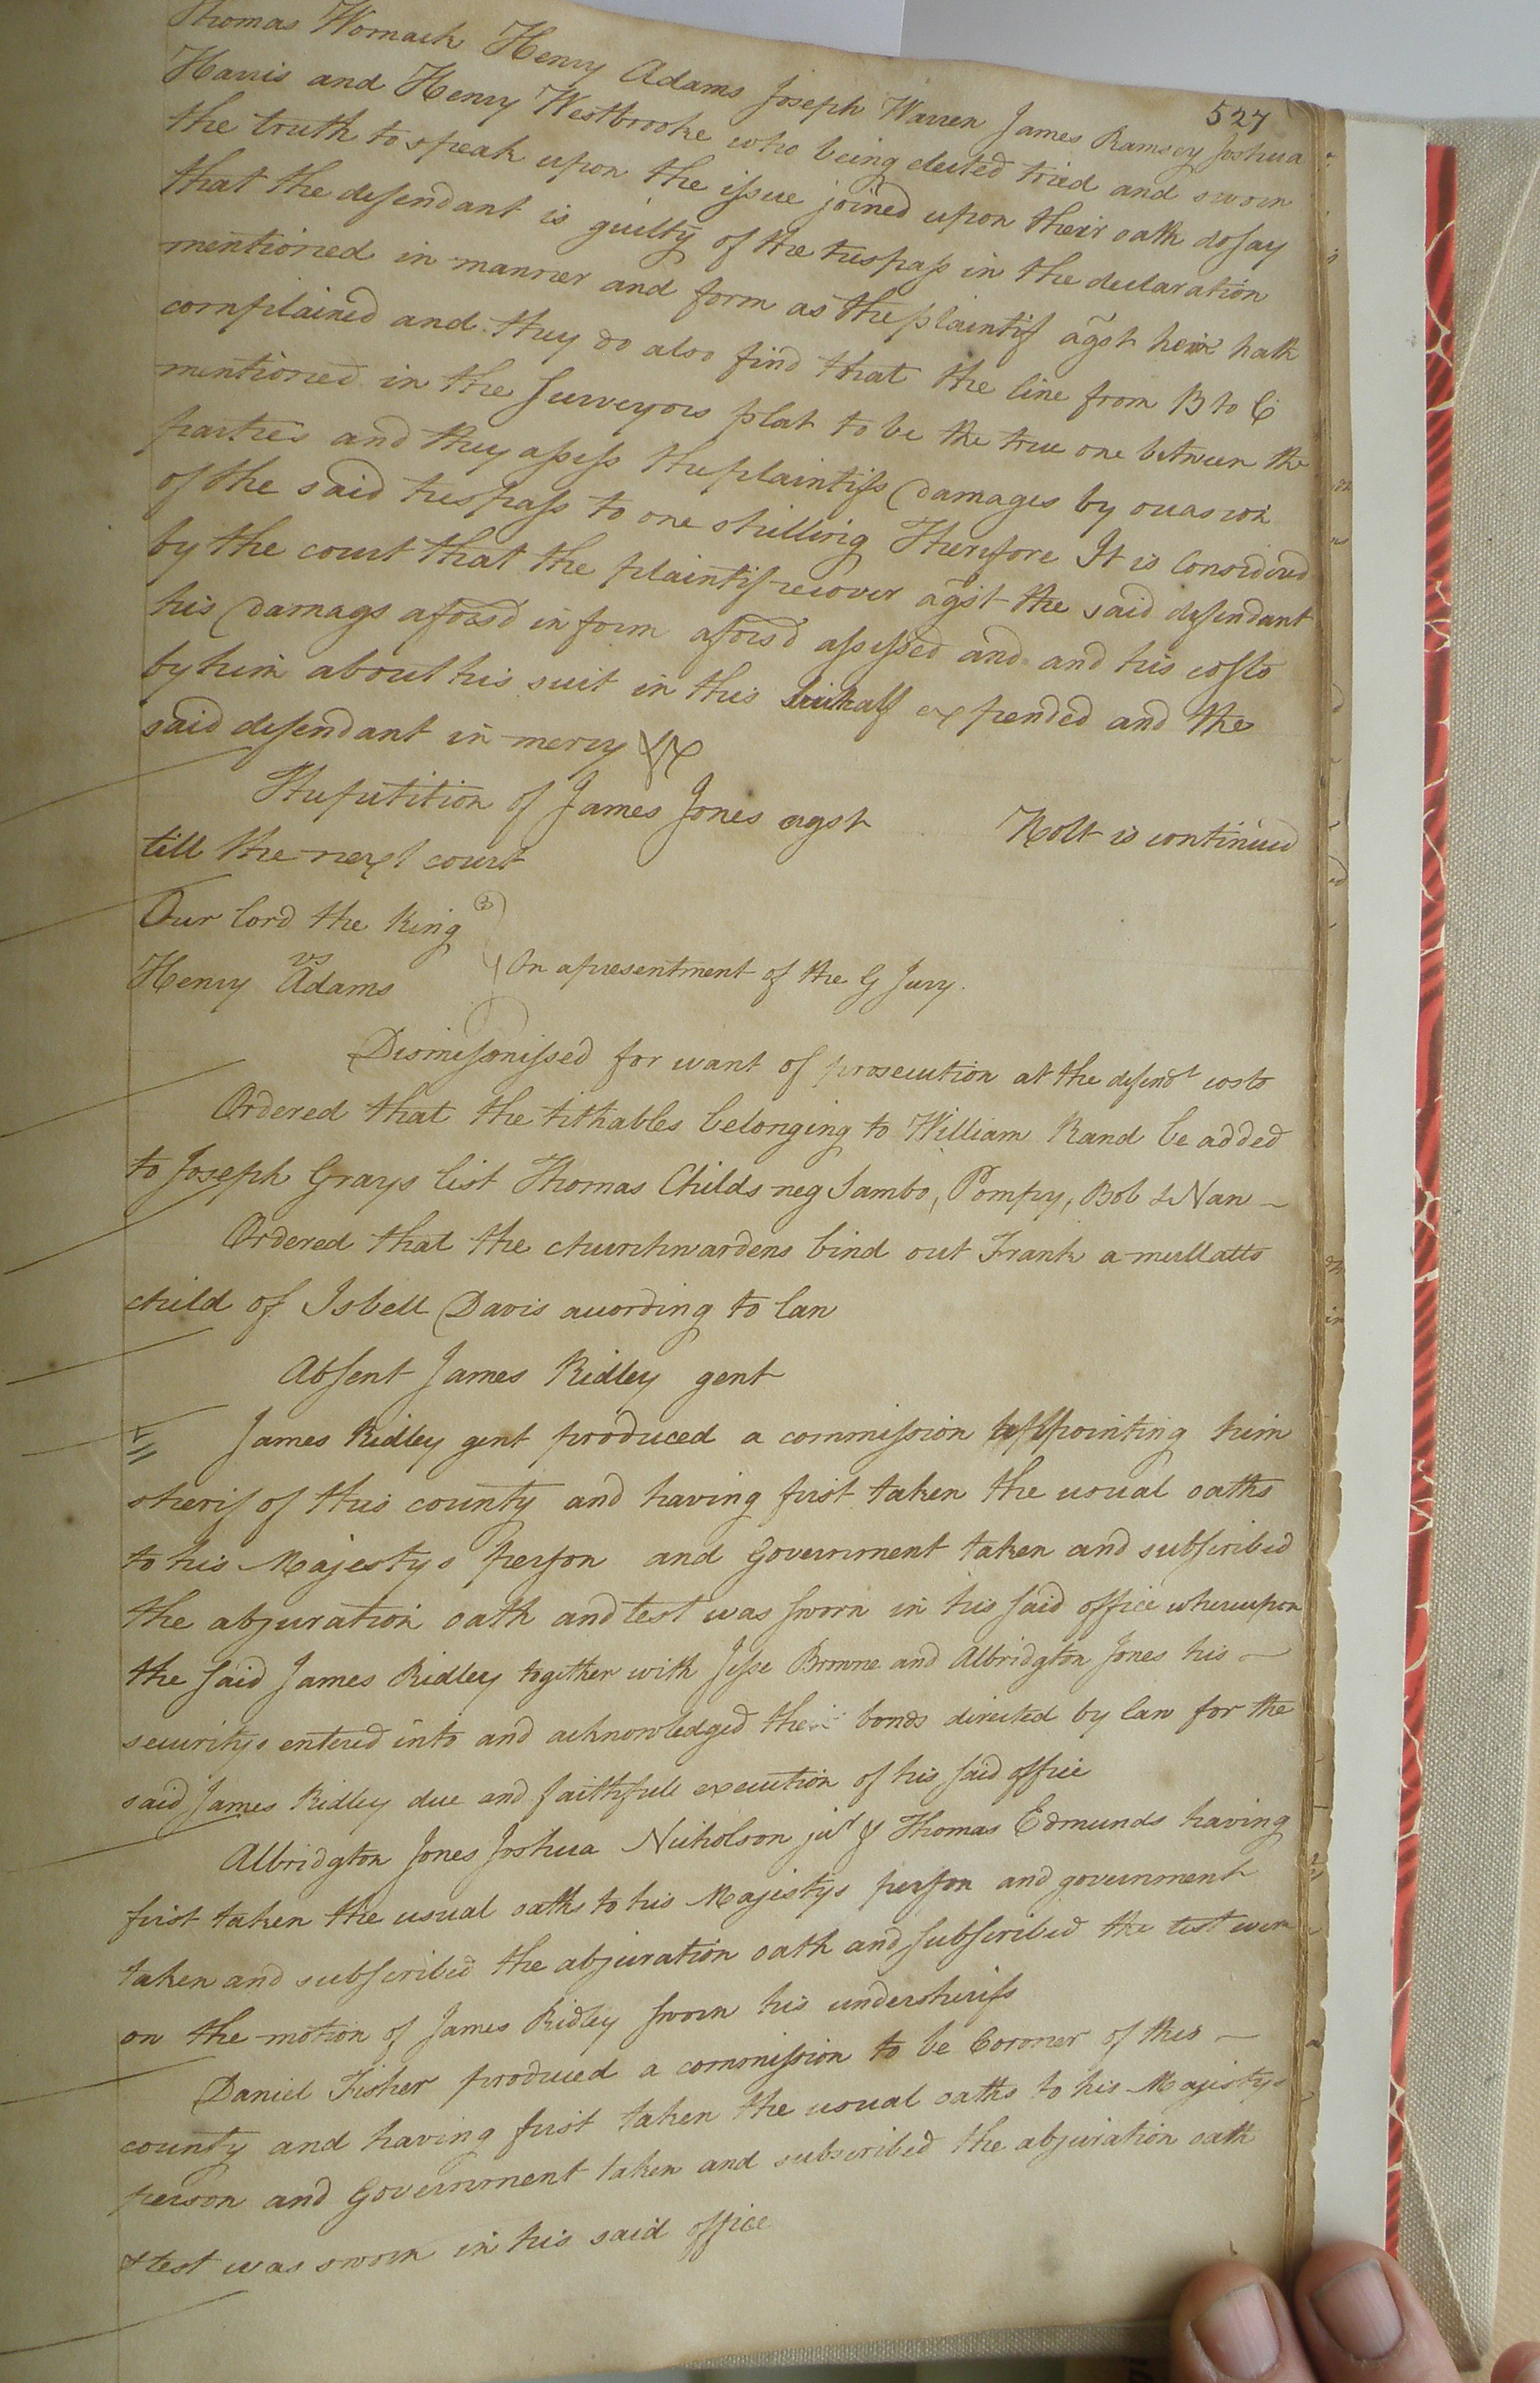 527
Thomas Womack Henry Adams Joseph Warren James Ramsey Joshua
Harris and Henry Westbrooke who being elected tried and sworn
the truth to speak upon the issue joined upon their oath do say
that the defendant is guilty of the trespass in the declaration
mentioned in manner and form as the plaintif agst him hath
complained and they do also find that the line from B to C
mentioned in the surveyors plat to be the true one between the
parties and they assess the plaintifs damages by occasion
of the said trespass to one shilling Therefore It is Considered
by the court that the plaintif recover agst the said defendant
his damags aforsd in form aforsd assessed and and his costs
by him about his suit in this behalf expended and the
said defendant in mercy &c
The petition of James Jones agst Holt is continued
till the next court
Our lord the King
vs
Henry Adams
On a presentment of the G Jury.
Dismissonissed for want of prosecution at the defendt costs
Ordered that the tithables belonging to William Rand be added
to Joseph Grays list Thomas Childs neg Sambo, Pompy, Bob & Nan
Ordered that the churchwardens bind out Frank a mullatto
child of Isbell Davis according to law
Absent James Ridley gent
James Ridley gent produced a commission appointing him
sherif of this county and having first taken the usual oaths
to his Majestys person and Government taken and subscribed
the abjuration oath and test was sworn in his said office whereupon
the said James Ridley together with Jesse Browne and Albridgton Jones his
securitys entered into and acknowledged their bonds directed by law for the
said James Ridley due and faithfull execution of his said office
Albridgton Jones Joshua Nicholson junr & Thomas Edmunds having
first taken the usual oaths to his Majestys person and government
taken and subscribed the abjuration oath and subscribed the test were
on the motion of James Ridley sworn his undersherifs
Daniel Fisher produced a commission to be Coroner of this
county and having first taken the usual oaths to his Majestys
person and Government taken and subscribed the abjuration oath
& test was sworn in his said office